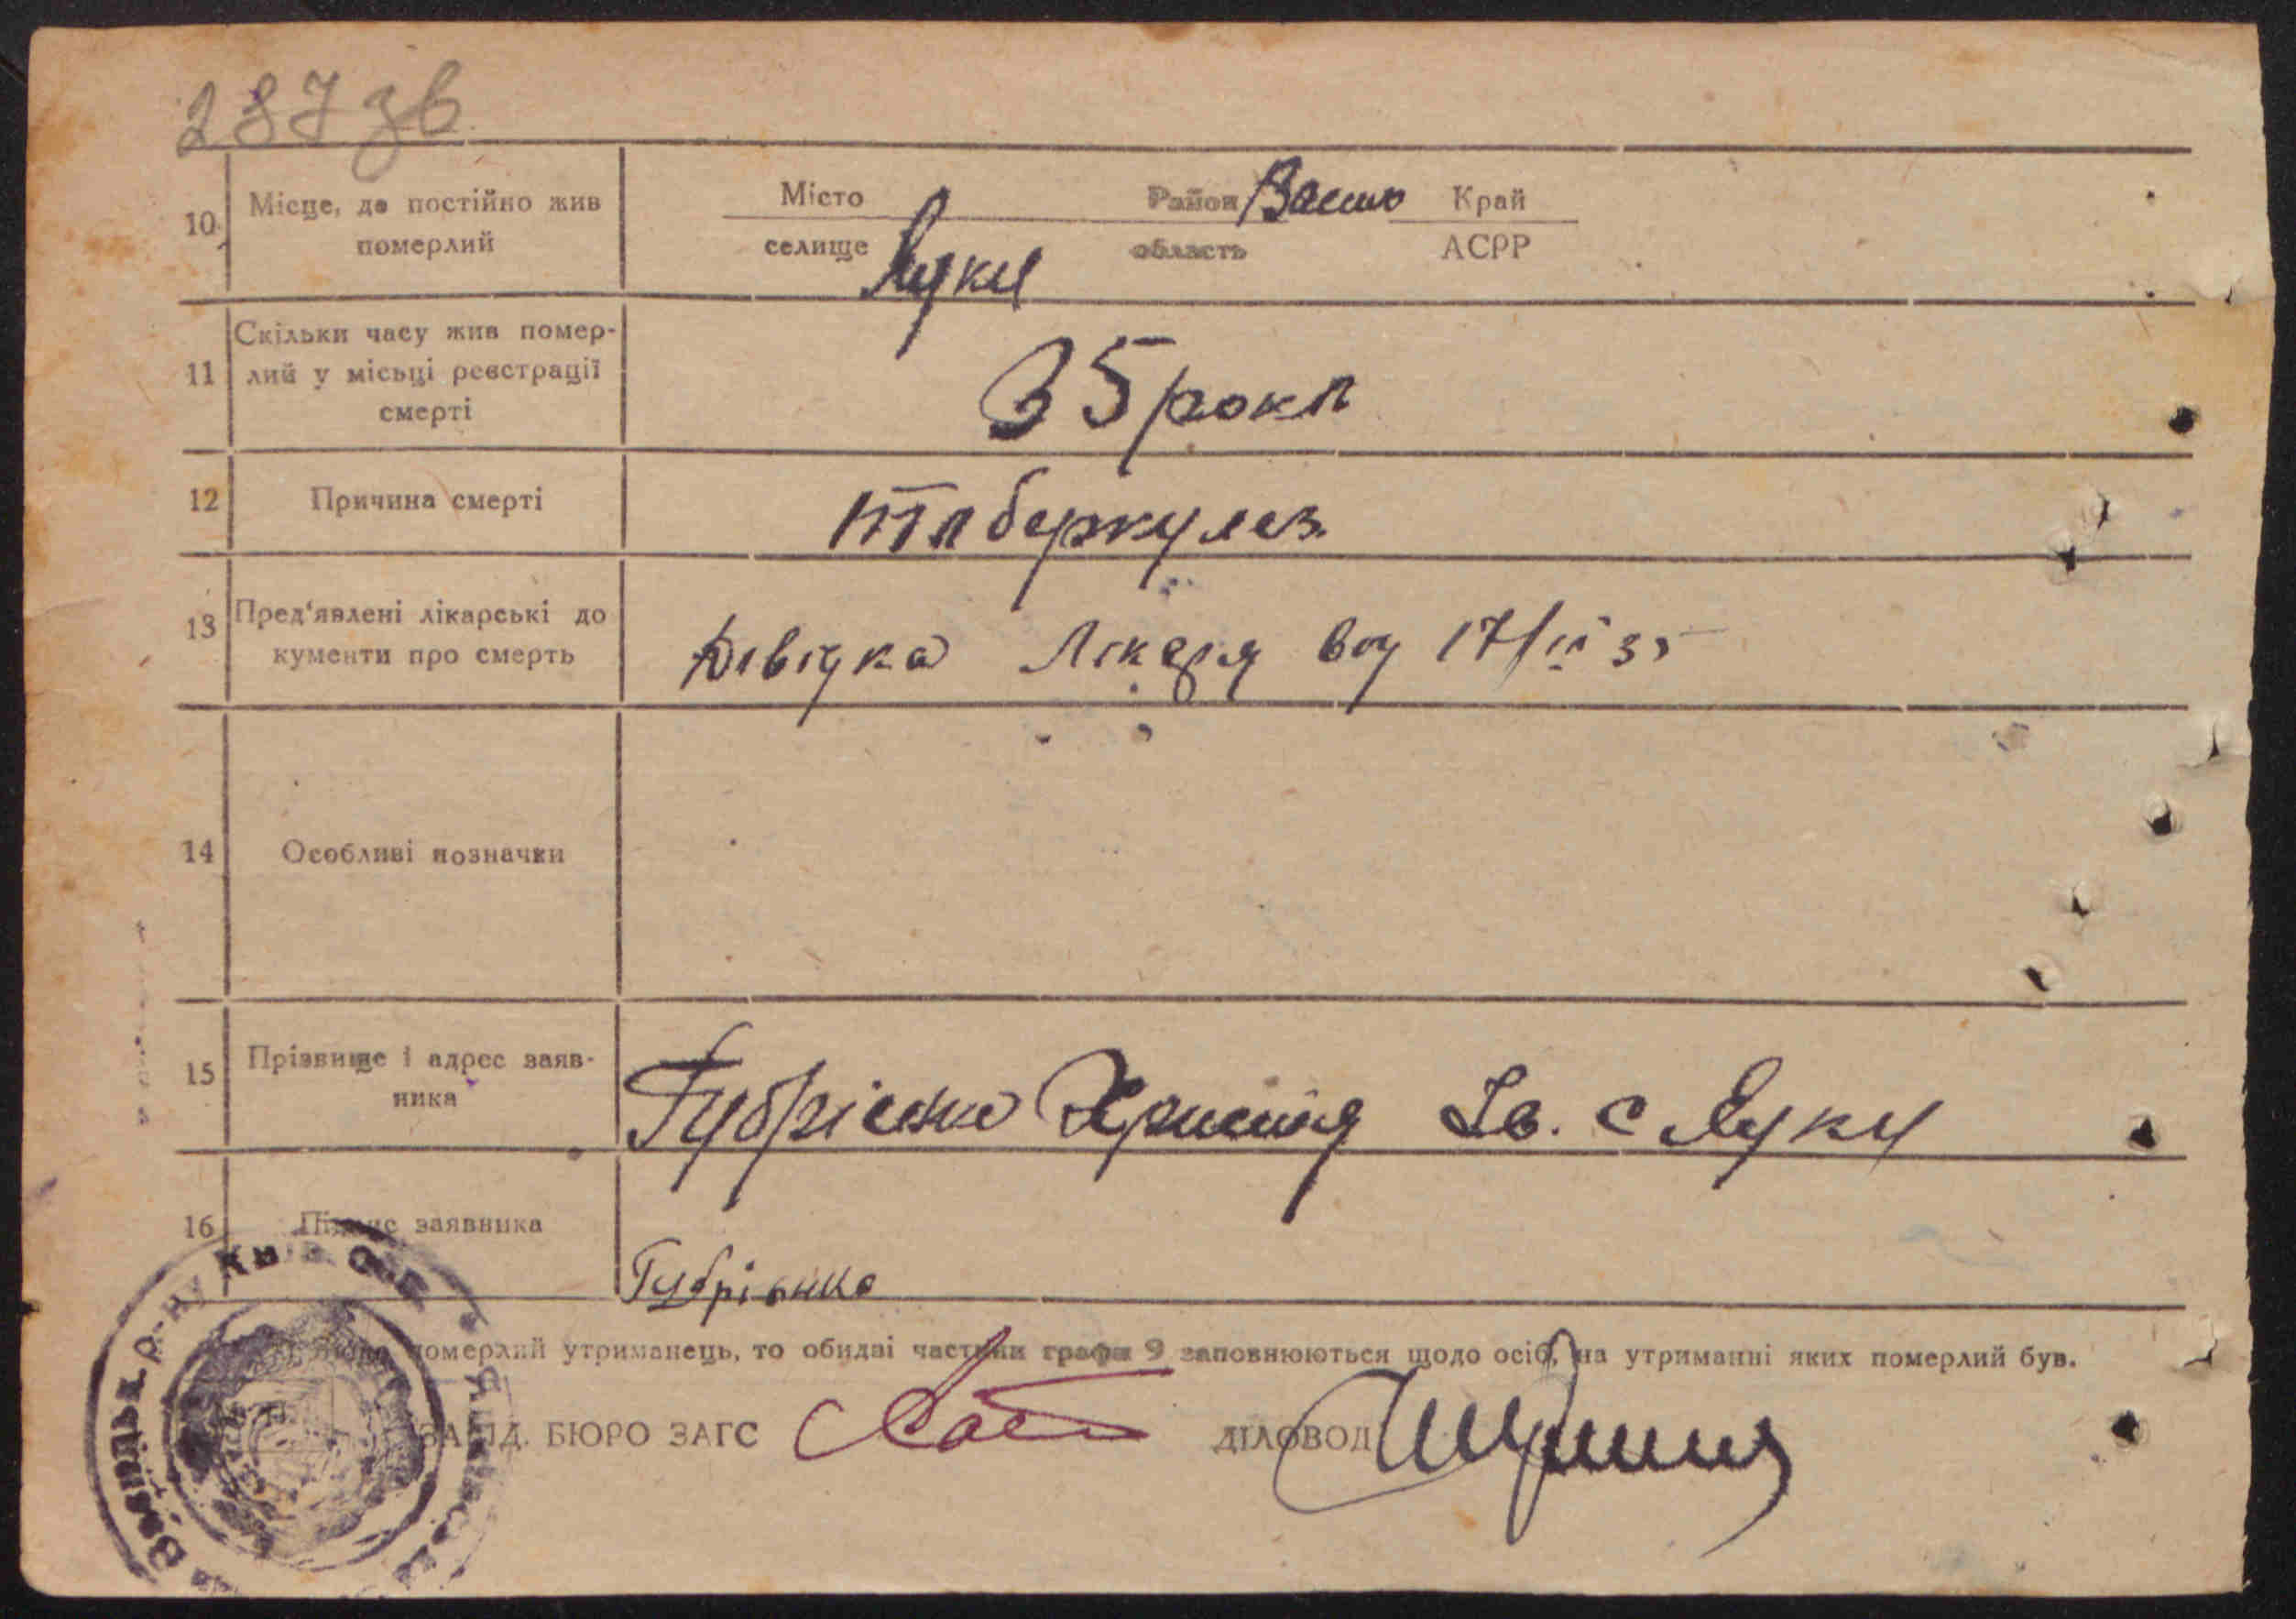 287 зв
10. Місце, де постійно жив
померлий
Місто Район Край
селище Луки область АСРР
11 Скільки часу жив помер-
лий у місьці реєстрації
смерті
35 рокл
12 Причина смерті
Тлберкулез
13 Пред'явлені лікарські до
кументи про смерть
Довідка Лікаря від 17/ІІ 35
14 Особливі позначки
15 Прізвище і адрес заяв-
ника
Губрієнко Христія Ів. с Луки
16 Підпис заявника
Губрієнко
померлий утриманець, то обидві частини графи 9 заповнюються щодо осіб, на утриманні яких померлий був.
ЗАВІД. БЮРО ЗАГС ДІЛОВОД